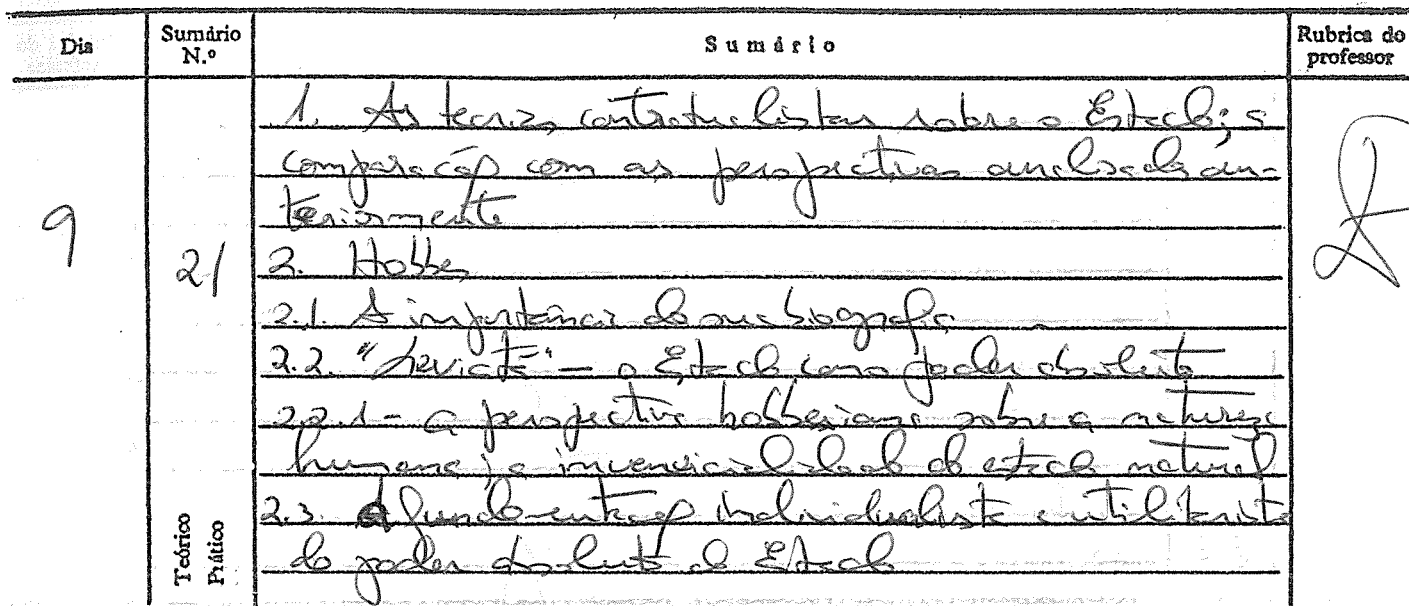 Dia
Sumário N.º
Sumário
Rubrica do professor
1. As teorias contratualistas sobre o Estado; a
comparação com as perspectivas analisadas an-
teriormente
9
21
2. Hobbes
2.1. A importância da sua biografia
2.2. "Leviatã" – o Estado como poder absoluto
2.2.1 – a perspectiva hobbesiana sobre a natureza
humana; a do estado natural
2.3. A fundamentação individualista e utilitarista
do poder absoluto do Estado
Teórico
Prático